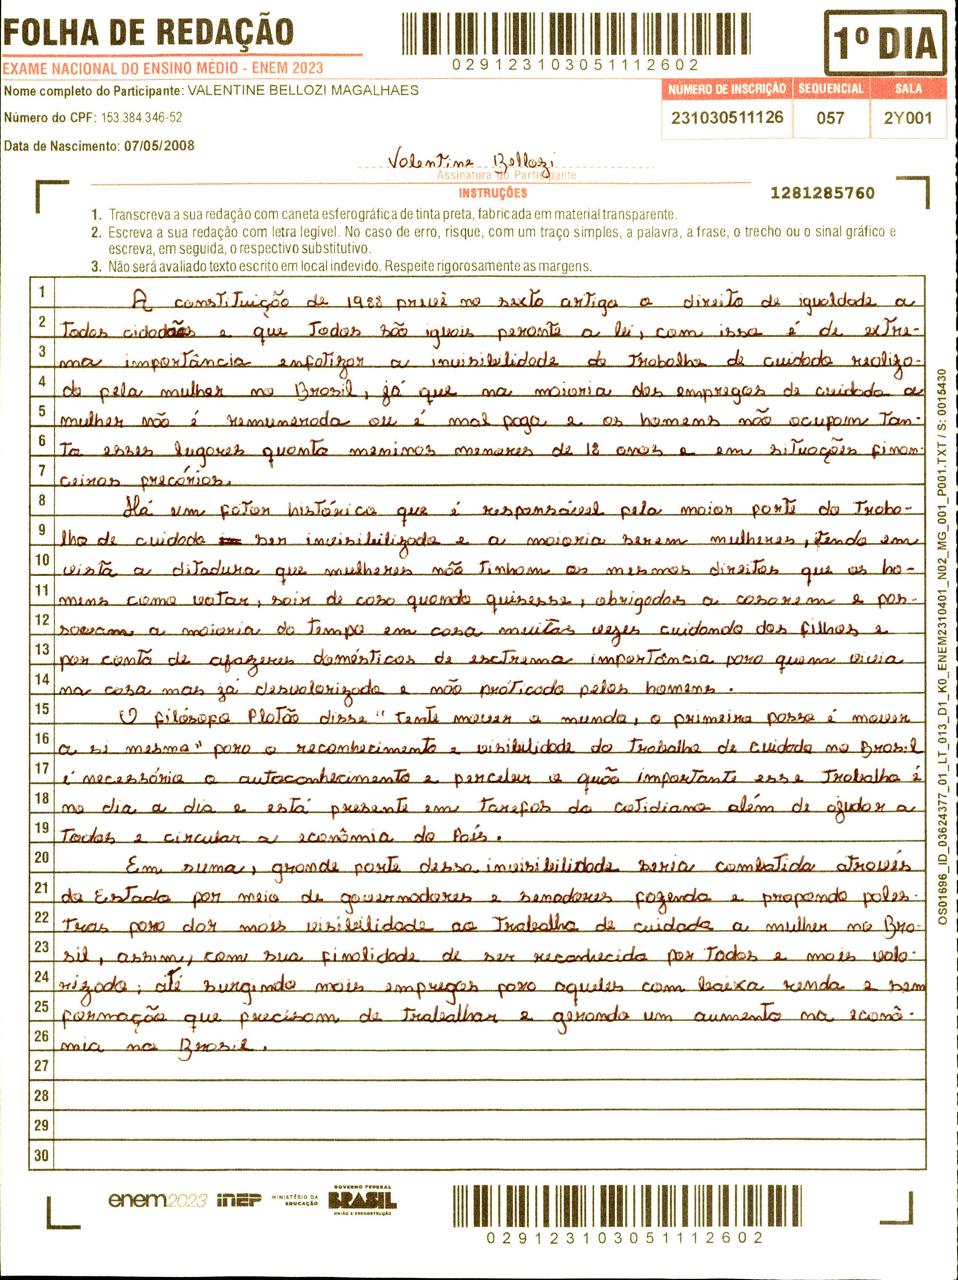 FOLHA DE REDAÇÃO
EXAME NACIONAL DO ENSINO MÉDIO - ENEM 2023
029123103051112602
1º DIA
Nome completo do Participante: VALENTINE BELLOZI MAGALHAES
Número do CPF: 153.384.346-52
Data de Nascimento: 07/05/2008
NÚMERO DE INSCRIÇÃO SEQUENCIAL SALA
231030511126 057 2Y001
Valentine Bellozi
Assinatura do Participante
INSTRUÇÕES
1281285760
1. Transcreva a sua redação com caneta esferográfica de tinta preta, fabricada em material transparente.
2. Escreva a sua redação com letra legível. No caso de erro, risque, com um traço simples, a palavra, a frase, o trecho ou o sinal gráfico e
escreva, em seguida, o respectivo substitutivo.
3. Não será avaliado texto escrito em local indevido. Respeite rigorosamente as margens.
1 A constituição de 1988 prevê no sexto artigo o direito de igualdade a
2 todos cidadãos e que todos são iguais perante a lei, com isso é de extre-
3 ma importância enfatizar a invisibilidade do trabalho de cuidado realiza-
4 do pela mulher no Brasil, já que na maioria dos empregos de cuidado a
5 mulher não é remunerada ou é mal paga e os homens não ocupam tan-
6 to esses lugares quanto meninas menores de 18 anos e em situações finan-
7 ceiras precárias.
8 Há um fator histórico que é responsável pela maior parte do traba-
9 lho de cuidado ser invisibilizado e a maioria serem mulheres, tendo em
10 vista a ditadura que mulheres não tinham os mesmos direitos que os ho-
11 mens como votar, sair de casa quando quisesse, obrigadas a casarem e pas-
12 savam a maioria do tempo em casa muitas vezes cuidando dos filhos e
13 por conta de afazeres domésticos de esctrema importância para quem vivia
14 na casa mas já desvalorizado e não práticado pelos homens.
15 O filósofo Platão disse "tente mover o mundo, o primeiro passo é mover
16 a si mesmo" para o reconhecimento e visibilidade do trabalho de cuidado no Brasil
17 é necessário o autoconhecimento e perceber o quão importante esse trabalho é
18 no dia a dia e está presente em tarefas do cotidiano além de ajudar a
19 todos e circular a econômia do País.
20 Em suma, grande parte dessa invisibilidade seria combatida através
21 do Estado por meio de governadores e senadores fazendo e propondo pales-
22 tras para dar mais visibilidade ao trabalho de cuidado a mulher no Bra-
23 sil, assim, com sua finalidade de ser reconhecido por todos e mais valo-
24 rizado; até surgindo mais empregos para aqueles com baixa renda e sem
25 formação que precisam de trabalhar e gerando um aumento na econô-
26 mia no Brasil.
27
28
29
30
OS01696_ID_03624377_01_LT_013_D1_K0_ENEM2310401_N02_MG_001_P001.TXT / S: 0015430
enem2023 inep MINISTÉRIO DA EDUCAÇÃO GOVERNO FEDERAL BRASIL UNIÃO E RECONSTRUÇÃO
029123103051112602